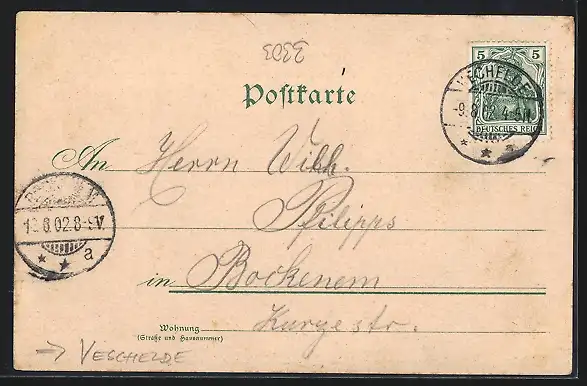 3303
Postkarte
5 5
VECHELDE
-9.8.02. 4-5N
DEUTSCHES REICH
An Herrn Wilh.
Philipps
8.02.8-9V.
a
in Bockenem
Kurzestr.
Wohnung
(Straße und Hausnummer)
→ VESCHELDE